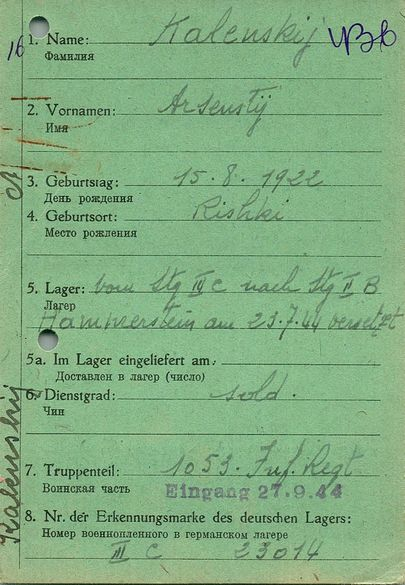 16
1. Name: Kalenskij
Фамилия
2. Vornamen: Arsentij
Имя
3. Geburtstag: 15.8.1922
День рождения
4. Geburtsort: Rishki
Место рождения
5. Lager: vom Stg III C nach Stg II B
Лагер
Hammerstein am 23.7.44 versetzt
5a. Im Lager eingeliefert am:
Доставлен в лагер (число)
6. Dienstgrad: sold.
Чин
7. Truppenteil: 1053. Inf. Regt
Воинская часть
Eingang 27.9.44
8. Nr. der Erkennungsmarke des deutschen Lagers:
Номер военнопленного в германском лагере
III C 23014
Kalenskij